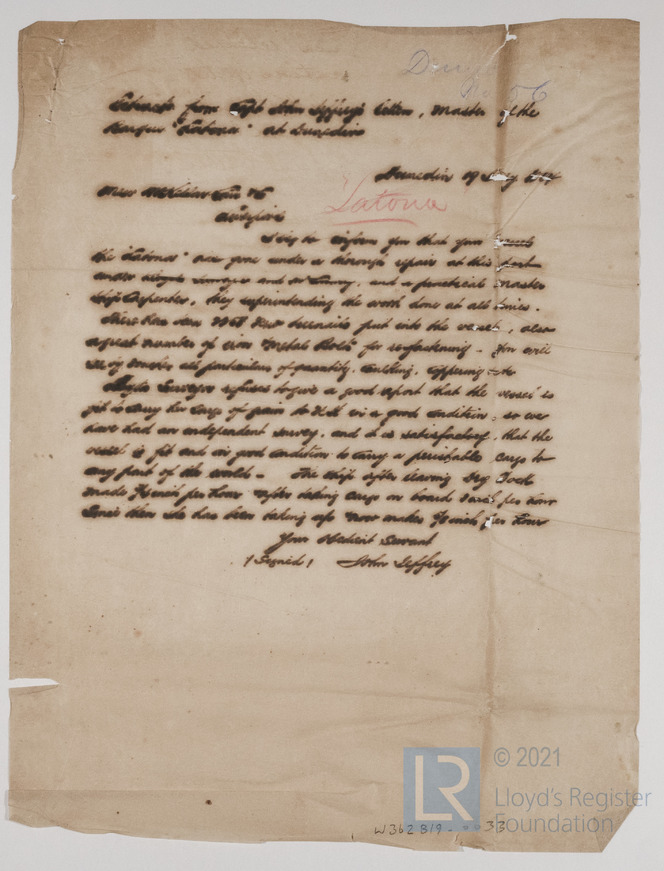 Extracts from Capt John Jeffrey's letters, Master of the
Barque "Latona" at Dunedin
Dunedin 19
Latona
I beg to inform you that your
the "Latona" has gone under a thorough repair at this Port
under Lloyds Surveyor and and a practical Master
Ship Carpenter, they superintending the work done at all times.
There has been New treenails put into the vessel, also
a great number of iron & Metal Bolts for re-fastening. You will
all particulars of quantity, Caulking, Coppering
Lloyds Surveyor refuses to give a good report that the vessel is
fit to carry her Cargo of grain to U.K in a good condition, so we
have had an independent survey, and it is satisfactory, that the
vessel is fit and in good condition to carry a perishable Cargo to
any part of the world - The Ship after leaving Dry Dock
made inch per hour after taking cargo on board inch per hour
Since then she has been taking up now makes inch per hour
Your Obedient Servant
(Signed) John Jeffrey
LR
© 2021
Lloyd's Register
Foundation